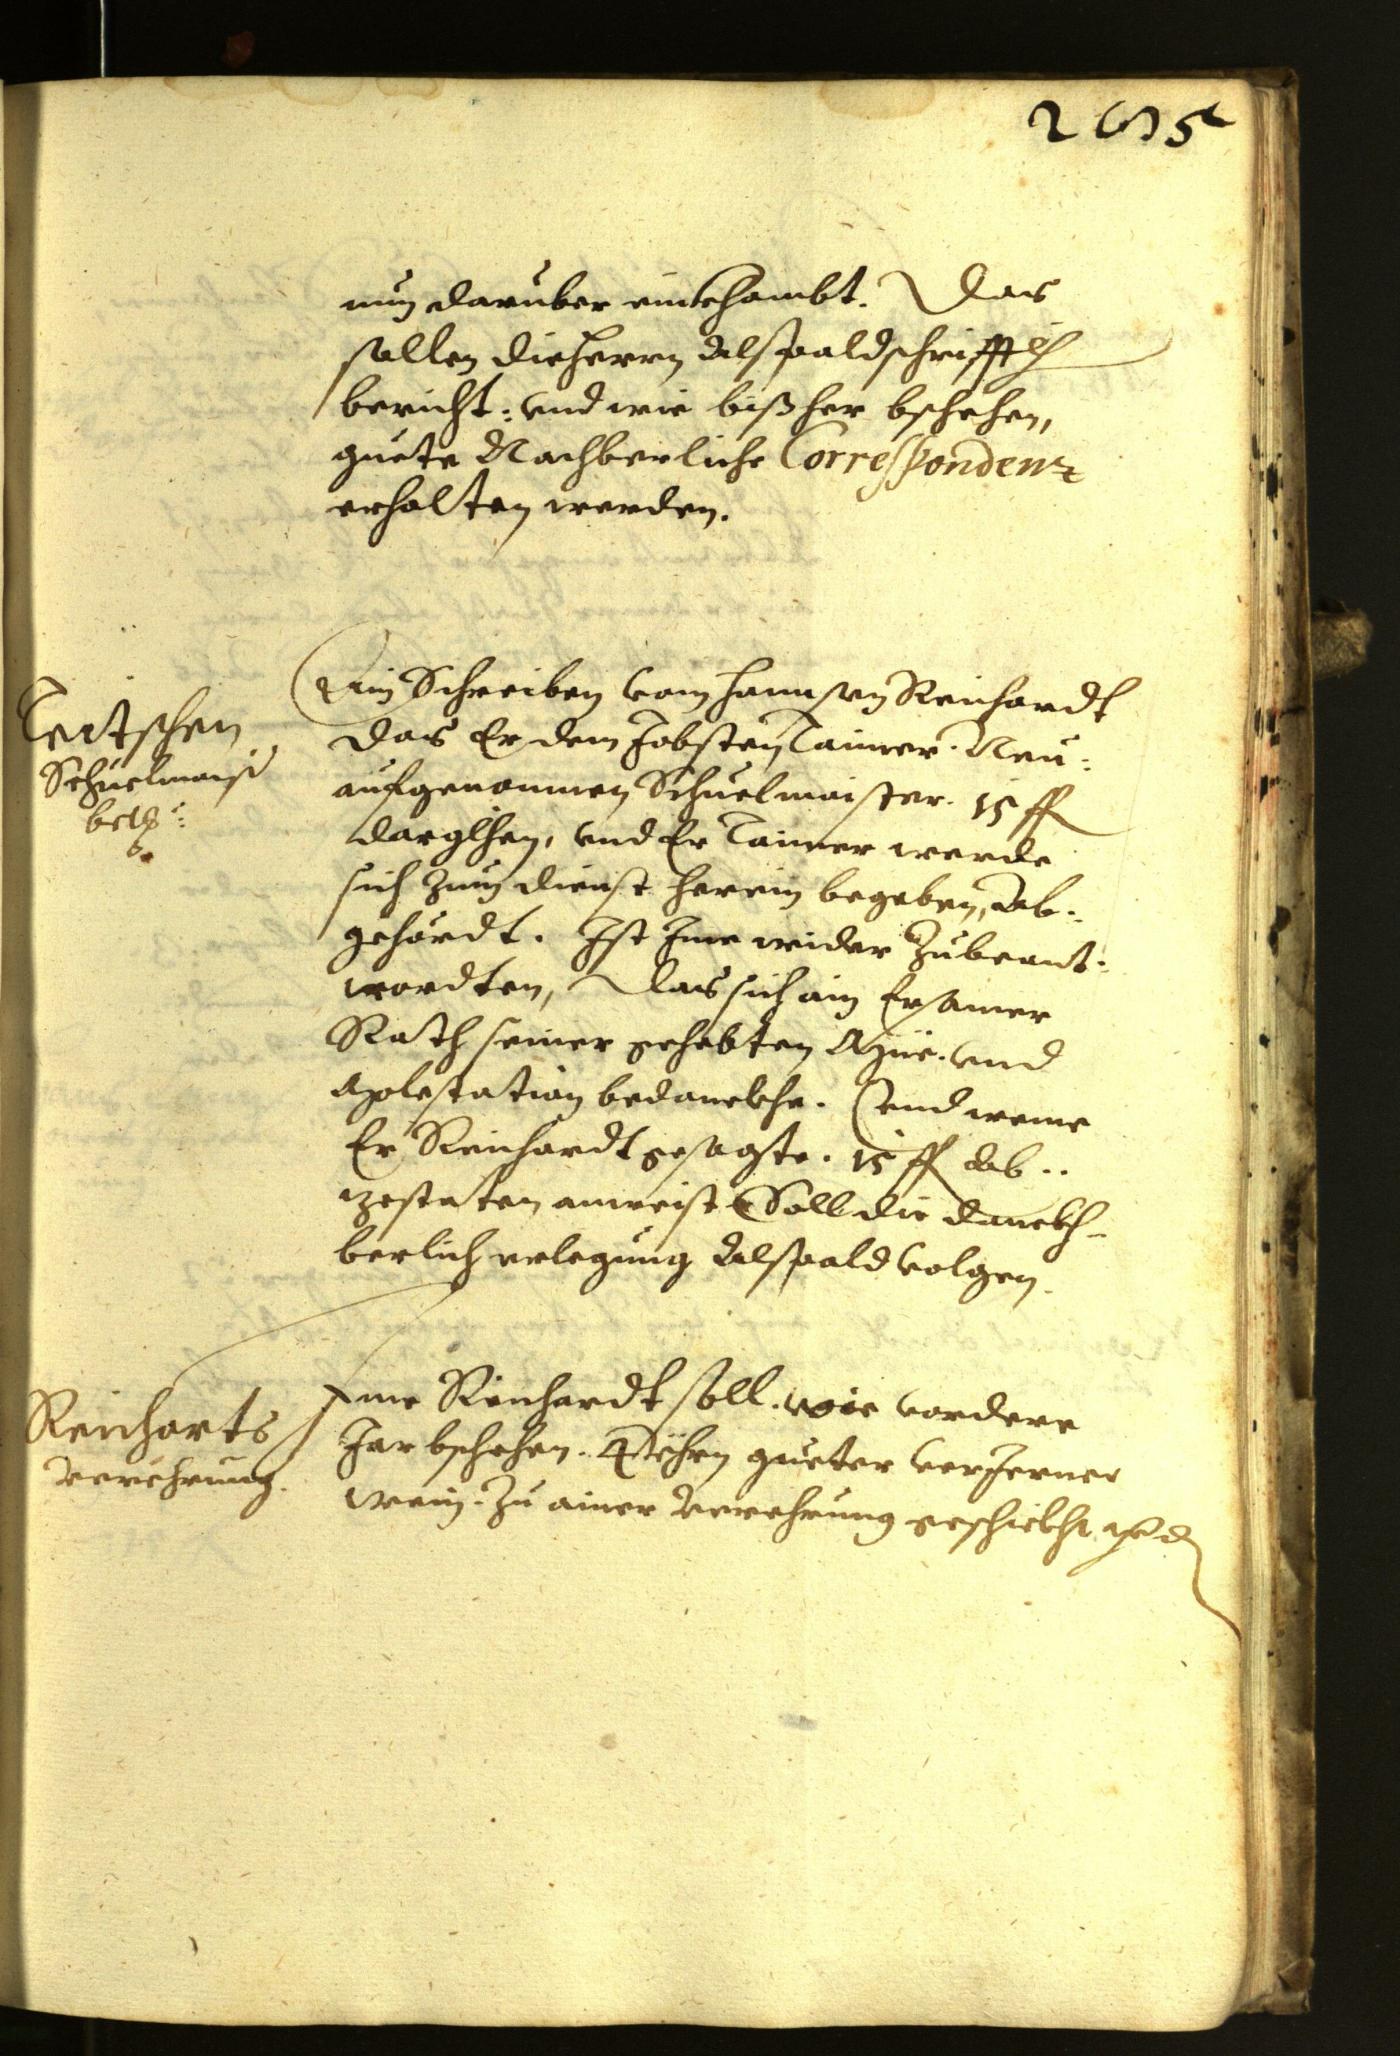 nun darüber einkhombt. Das
sollen die Herrn alßpald schrifftlich
bericht: vnd wie bißher bschehen,
guete Nachberliche Correspondenz
erhalten werden.
Teitschen
Schuelmaist
betr:
Ein Schreiben vom Hannsen Reinhardt
das Er dem Jobsten Tanner Neu:
aufgenommen Schuelmaister. 15 fl
darglihen, vnd Er Tanner werde
sich zum dienst herein begeben, Ab:
gehördt. Ist Ime wider zubeant:
wordten, Das sich ain Ersamer
Rath seiner gehabten Müe. vnd
Molestation bedanckhe. vnd wenne
Er Reinhardt gesagte. 15 fl ab
zestaten anweist Soll die danckh-
berlich erlegung alßpald volgen.
Reicharts
verehrung.
Ime Reinhardt soll. wie vordere
Jar bschehen. 4 Yhrn gueter verferner
wein. zu ainer verehrung geschickht